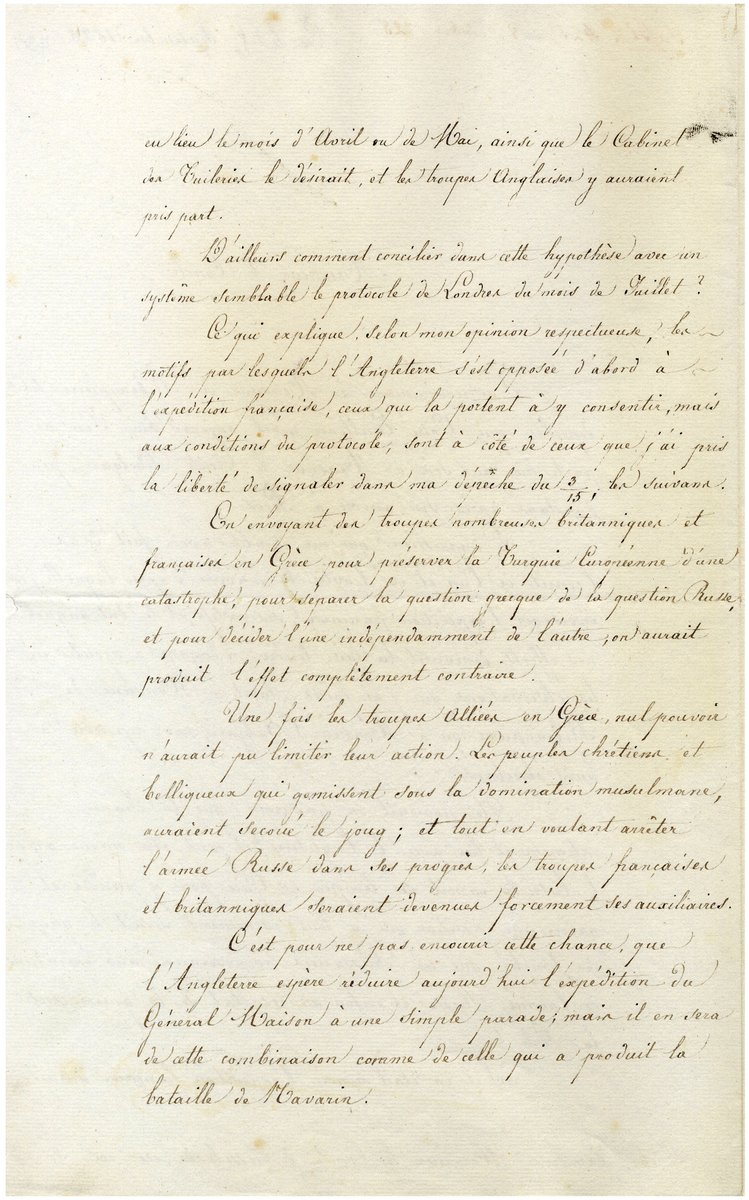 eu lieu le mois d'Avril ou de Mai, ainsi que le Cabinet
des Tuileries le désirait, et les troupes Anglaises y auraient
pris part.
D'ailleurs comment concilier dans cette hypothèse avec un
système semblable le protocole de Londres du mois de Juillet?
Ce qui explique, selon mon opinion respectueuse, les
motifs par lesquels l'Angleterre s'est opposée d'abord à
l'expédition française, ceux qui la portent à y consentir, mais
aux conditions du protocole, sont à côté de ceux que j'ai pris
la liberté de signaler dans ma dépêche du 3/15, les suivans.
En envoyant des troupes nombreuses britanniques et
françaises en Grèce pour préserver la Turquie Européenne d'une
catastrophe, pour séparer la question grecque de la question Russe,
et pour décider l'une indépendamment de l'autre, on aurait
produit l'effet complètement contraire.
Une fois les troupes Alliées en Grèce, nul pouvoir
n'aurait pu limiter leur action. Les peuples chrétiens et
belliqueux qui gemissent sous la domination musulmane,
auraient secoué le joug; et tout en voulant arrêter
l'armée Russe dans ses progrès, les troupes françaises
et britanniques seraient devenues forcément ses auxiliaires.
C'est pour ne pas encourir cette chance, que
l'Angleterre espère réduire aujourd'hui l'expédition du
Général Maison à une simple parade; mais il en sera
de cette combinaison comme de celle qui a produit la
bataille de Navarin.